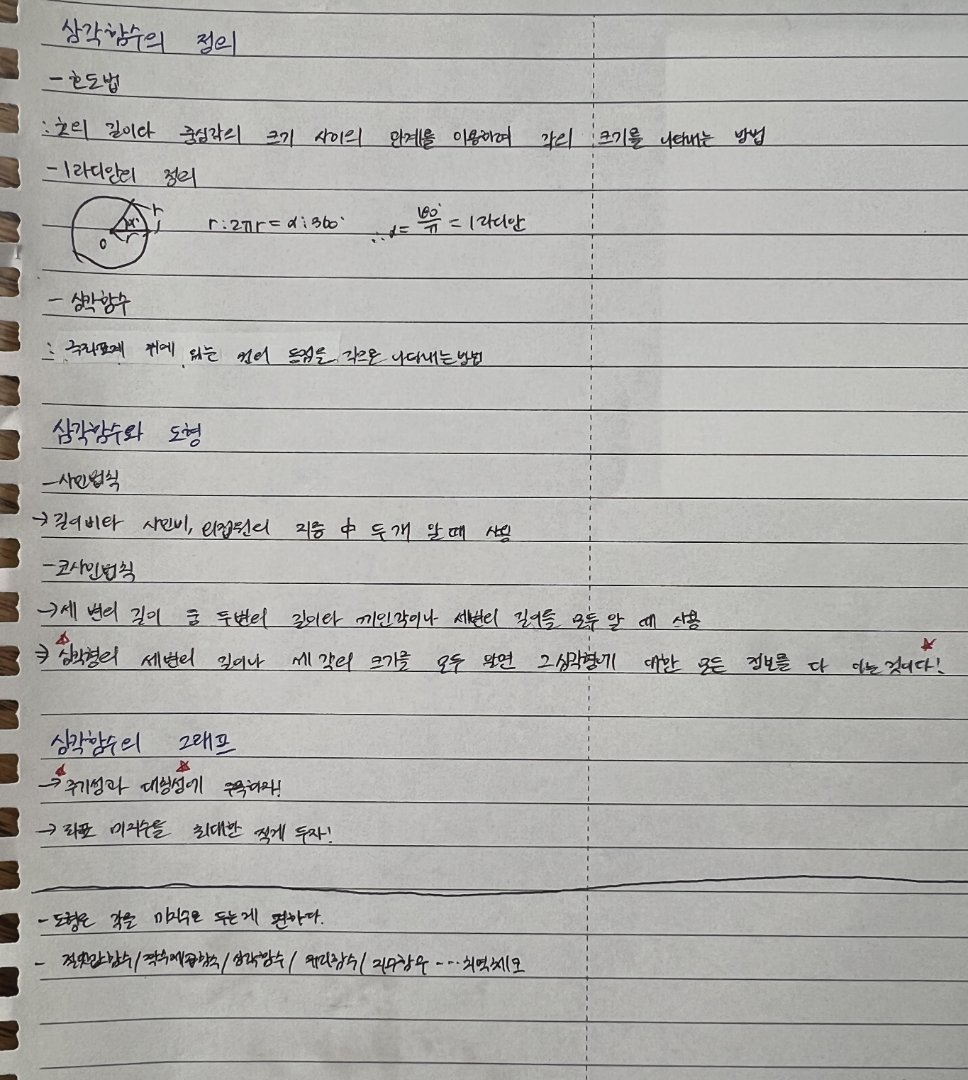 삼각함수의 정의
- 호도법
: 호의 길이와 중심각의 크기 사이의 관계를 이용하여 각의 크기를 나타내는 방법
- 1라디안의 정의
r : 2πr = α : 360° ∴ α = 180°/π = 1라디안
r α° r r O
- 삼각함수
: 극좌표계 위에 있는 원의 동점을 각으로 나타내는 방법
삼각함수와 도형
- 사인법칙
→ 길이비와 사인비, 외접원의 지름 中 두개 알 때 사용
- 코사인법칙
→ 세 변의 길이 중 두변의 길이와 끼인각이나 세변의 길이를 모두 알 때 사용
⇒ 삼각형의 세변의 길이나 세 각의 크기를 모두 알면 그 삼각형에 대한 모든 정보를 다 아는 것이다!
삼각함수의 그래프
→ 주기성과 대칭성에 주목하라!
→ 좌표 미지수를 최대한 적게 두자!
- 도형은 각을 미지수로 두는게 편하다.
- 절댓값함수 / 삼각함수 / 지수함수 ---